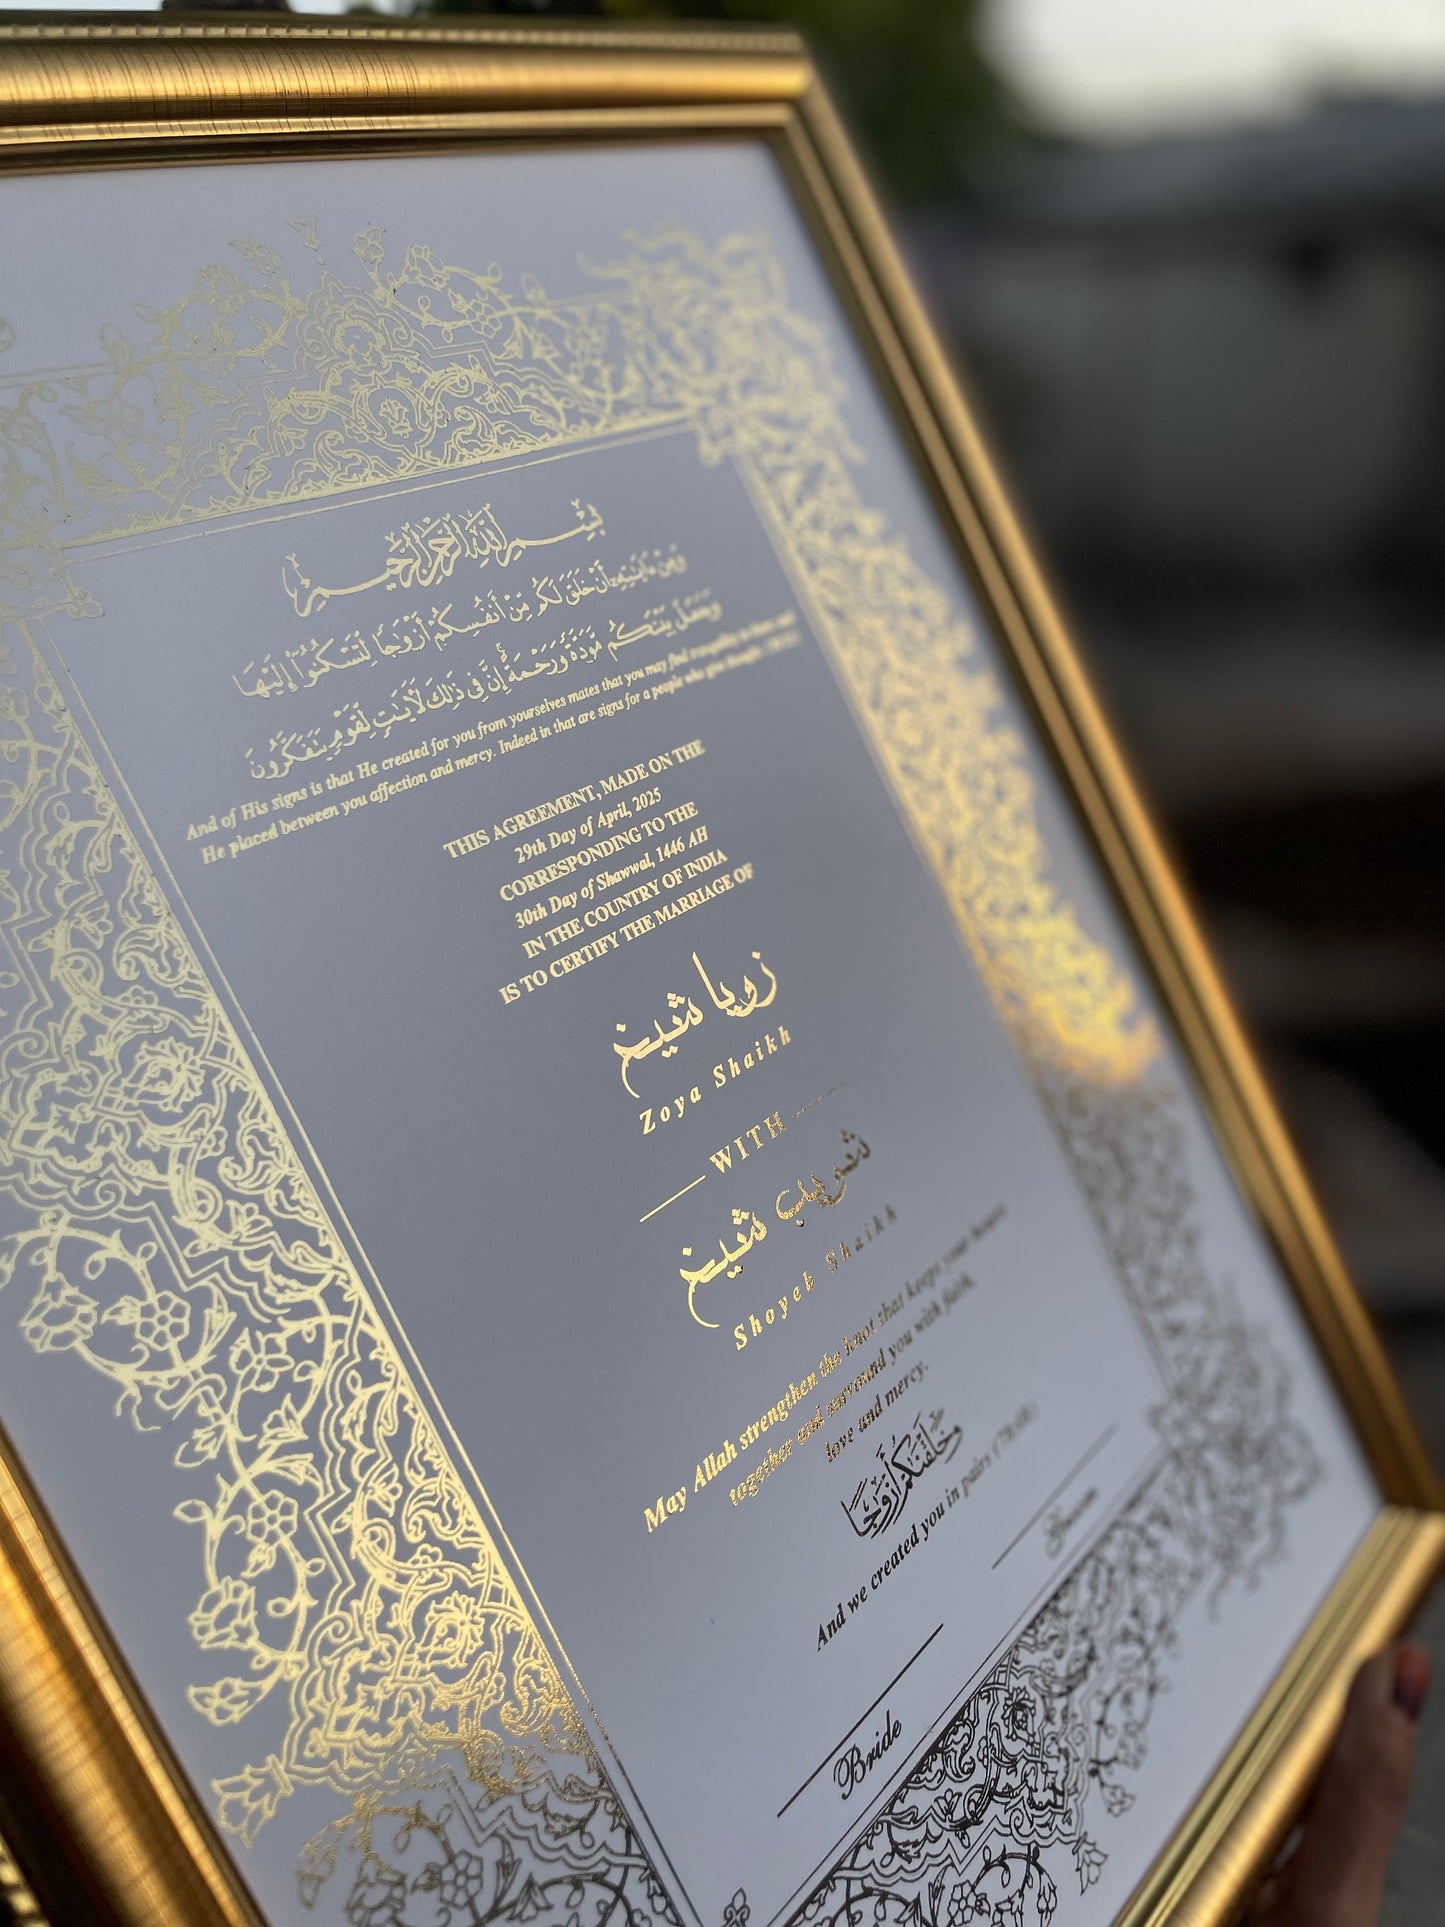 بِسْمِ اللَّهِ الرَّحْمَٰنِ الرَّحِيمِ
وَمِنْ ءَايَـٰتِهِۦٓ أَنْ خَلَقَ لَكُم مِّنْ أَنفُسِكُمْ أَزْوَٰجًا لِّتَسْكُنُوٓا۟ إِلَيْهَا
وَجَعَلَ بَيْنَكُم مَّوَدَّةً وَرَحْمَةً إِنَّ فِى ذَٰلِكَ لَـَٔايَـٰتٍ لِّقَوْمٍ يَتَفَكَّرُونَ
And of His signs is that He created for you from yourselves mates that you may find tranquility in them; and
He placed between you affection and mercy. Indeed in that are signs for a people who give thought.
THIS AGREEMENT, MADE ON THE
29th Day of April, 2025
CORRESPONDING TO THE
30th Day of Shawwal, 1446 AH
IN THE COUNTRY OF INDIA
IS TO CERTIFY THE MARRIAGE OF
زویا شیخ
Zoya Shaikh
WITH
شویب شیخ
Shoyeb Shaikh
May Allah strengthen the knot that keeps your hearts
together and surround you with faith,
love and mercy.
وَخَلَقْنَٰكُمْ أَزْوَٰجًا
And we created you in pairs (78:08)
Groom
Bride